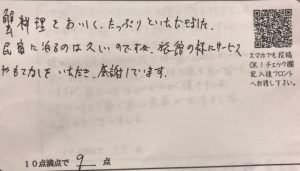 蟹料理とおいしく、たっぷりといただきました。
民宿に泊るのは久しいのですが、旅館の様にサービス
おもてなしをいただき、感謝しています。
スマホでも投稿
OK!チェック欄
記入後フロント
へお渡し下さい。
10点満点で 9 点